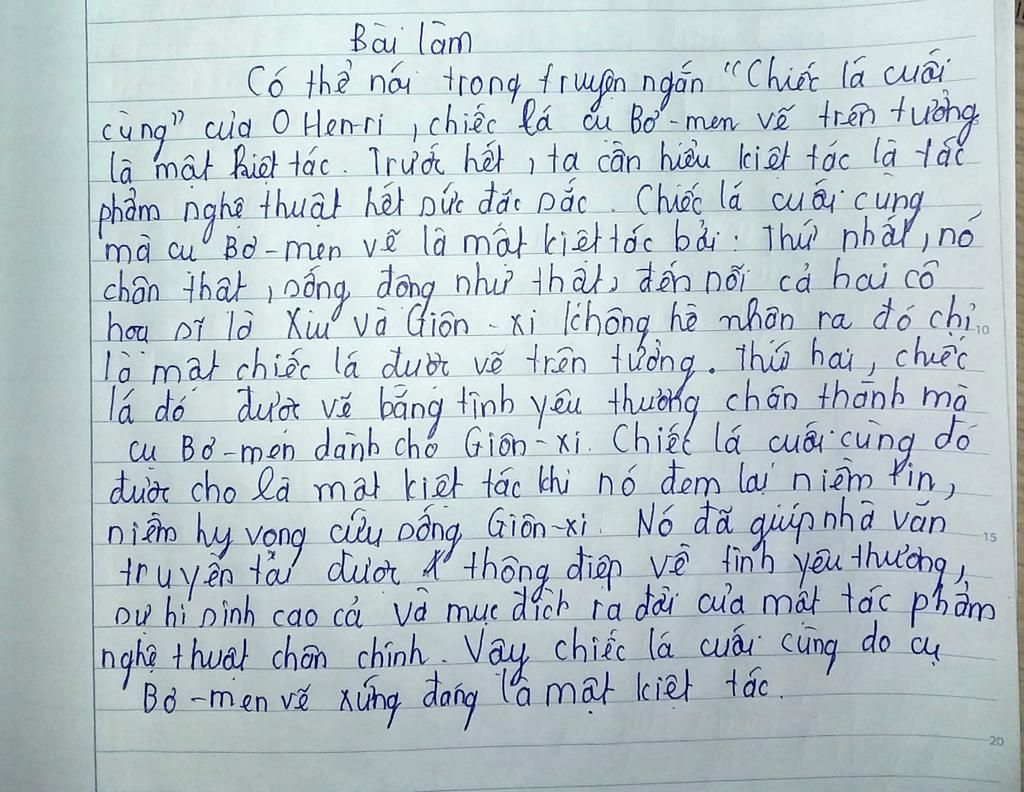 Bài làm
Có thể nói trong truyện ngắn "Chiếc lá cuối
cùng" của O Hen-ri, chiếc lá cụ Bơ-men vẽ trên tường
là một kiệt tác. Trước hết, ta cần hiểu kiệt tác là tác
phẩm nghệ thuật hết sức đặc sắc. Chiếc lá cuối cùng
mà cụ Bơ-men vẽ là một kiệt tác bởi: Thứ nhất, nó
chân thật, sống động như thật, đến nỗi cả hai cô
hoạ sĩ là Xiu và Giôn-xi không hề nhận ra đó chỉ 10
là một chiếc lá được vẽ trên tường. Thứ hai, chiếc
lá đó được vẽ bằng tình yêu thương chân thành mà
cụ Bơ-men dành cho Giôn-xi. Chiếc lá cuối cùng đó
được cho là một kiệt tác khi nó đem lại niềm tin,
niềm hy vọng cứu sống Giôn-xi. Nó đã giúp nhà văn 15
truyền tải được thông điệp về tình yêu thương,
sự hi sinh cao cả và mục đích ra đời của một tác phẩm
nghệ thuật chân chính. Vậy chiếc lá cuối cùng do cụ
Bơ-men vẽ xứng đáng là một kiệt tác.
20